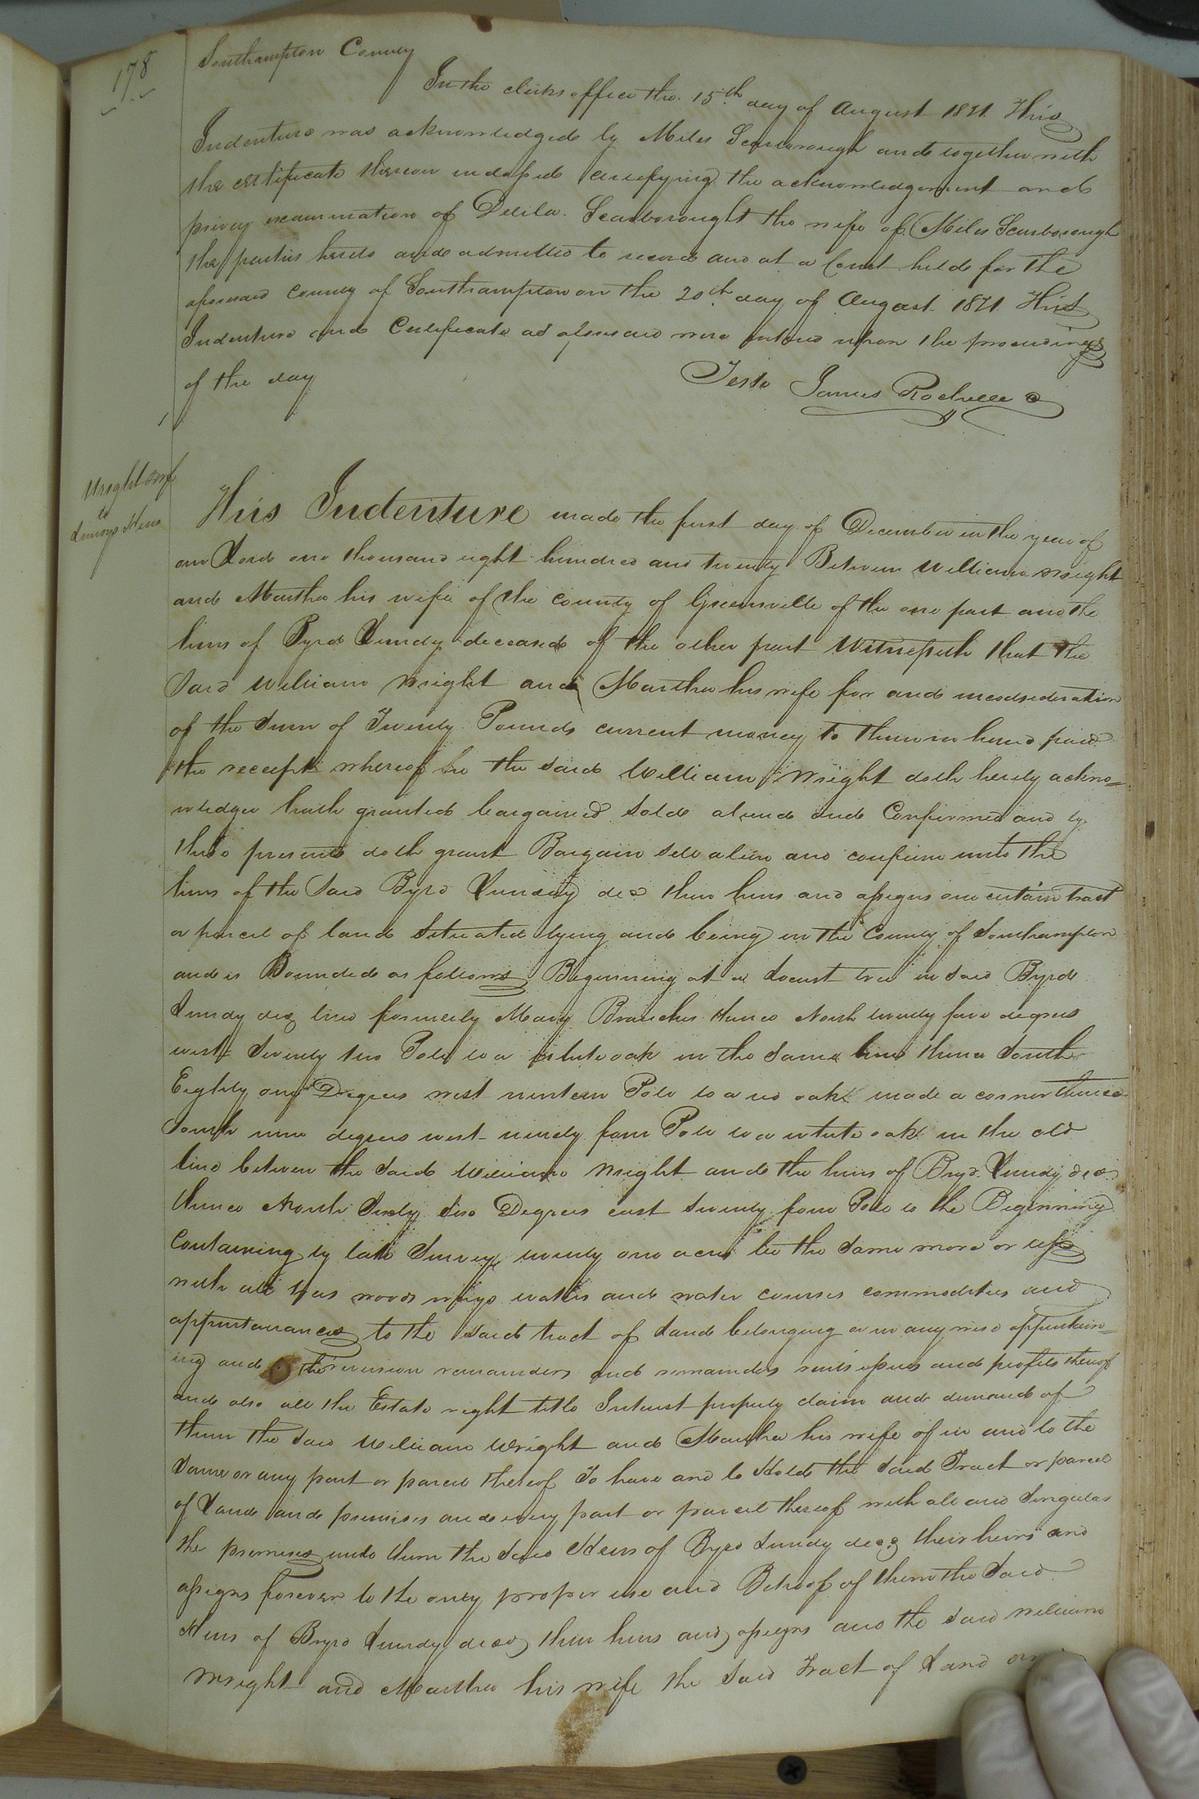 178
Southampton County
In the clerks office the 15th day of August 1821 This
Indenture was acknowledged by Miles Scarborough and together with
the certificate thereon indorsed certifying the acknowledgement and
privy examination of Delila Scarborought the wife of Miles Scarborough
the parties hereto and admitted to record and at a Court held for the
aforesaid County of Southampton on the 20th day of August 1821 This
Indenture and Certificate as aforesaid were entered upon the proceedings
of the day
Teste James Rochelle C
Wright & wf
to
Lundys Heirs
This Indenture made the first day of December in the year of
our Lord one thousand eight hundred and twenty Between William Wright
and Martha his wife of the County of Greensville of the one part and the
heirs of Byrd Lundy deceased of the other part Witnesseth that the
Said William Wright and Martha his wife for and inconsideration
of the Sum of Twenty Pounds current money to them in hand paid
the receipt whereof he the Said William Wright doth hereby ackno=
wledge hath granted bargained Sold aliend and Confirmed and by
these presents doth grant Bargain Sell alien and confirm unto the
heirs of the Said Byrd Lundy decd their heirs and assigns one certain tract
or parcel of land Situated lying and being in the County of Southampton
and is Bounded as follows Beginning at a Locust tree in Said Byrd
Lundy decd line formerly Mary Branches thence North twenty five degrees
west Seventy two Pole to a white oak in the Same line thence South
Eighty one Degrees west nineteen Pole to a red oak made a corner thence
South nine degrees west ninety four Pole to a white oak in the old
line between the Said William Wright and the heirs of Byrd Lundy decd
thence North Sixty Six Degrees east Seventy four Pole to the Beginning
Containing by late Survey twenty one acres be the Same more or less
with all trees woods ways waters and water courses commodities and
appurtanances to the Said tract of Land belonging or in any wise appertain=
ing and the revision remainders and remainders rents issues and profits thereof
and also all the Estate right title Interest property claim and demand of
them the Said William Wright and Martha his wife of in and to the
Same or any part or parcel thereof To have and to Hold the Said Tract or parcel
of Land and premises and every part or parcel thereof with all and Singular
the premises unto them the Said Heirs of Byrd Lundy decd their heirs and
assigns forever to the only proper use and Behoof of them the Said
Heirs of Byrd Lundy decd their heirs and assigns and the Said William
Wright and Martha his wife the Said Tract of Land